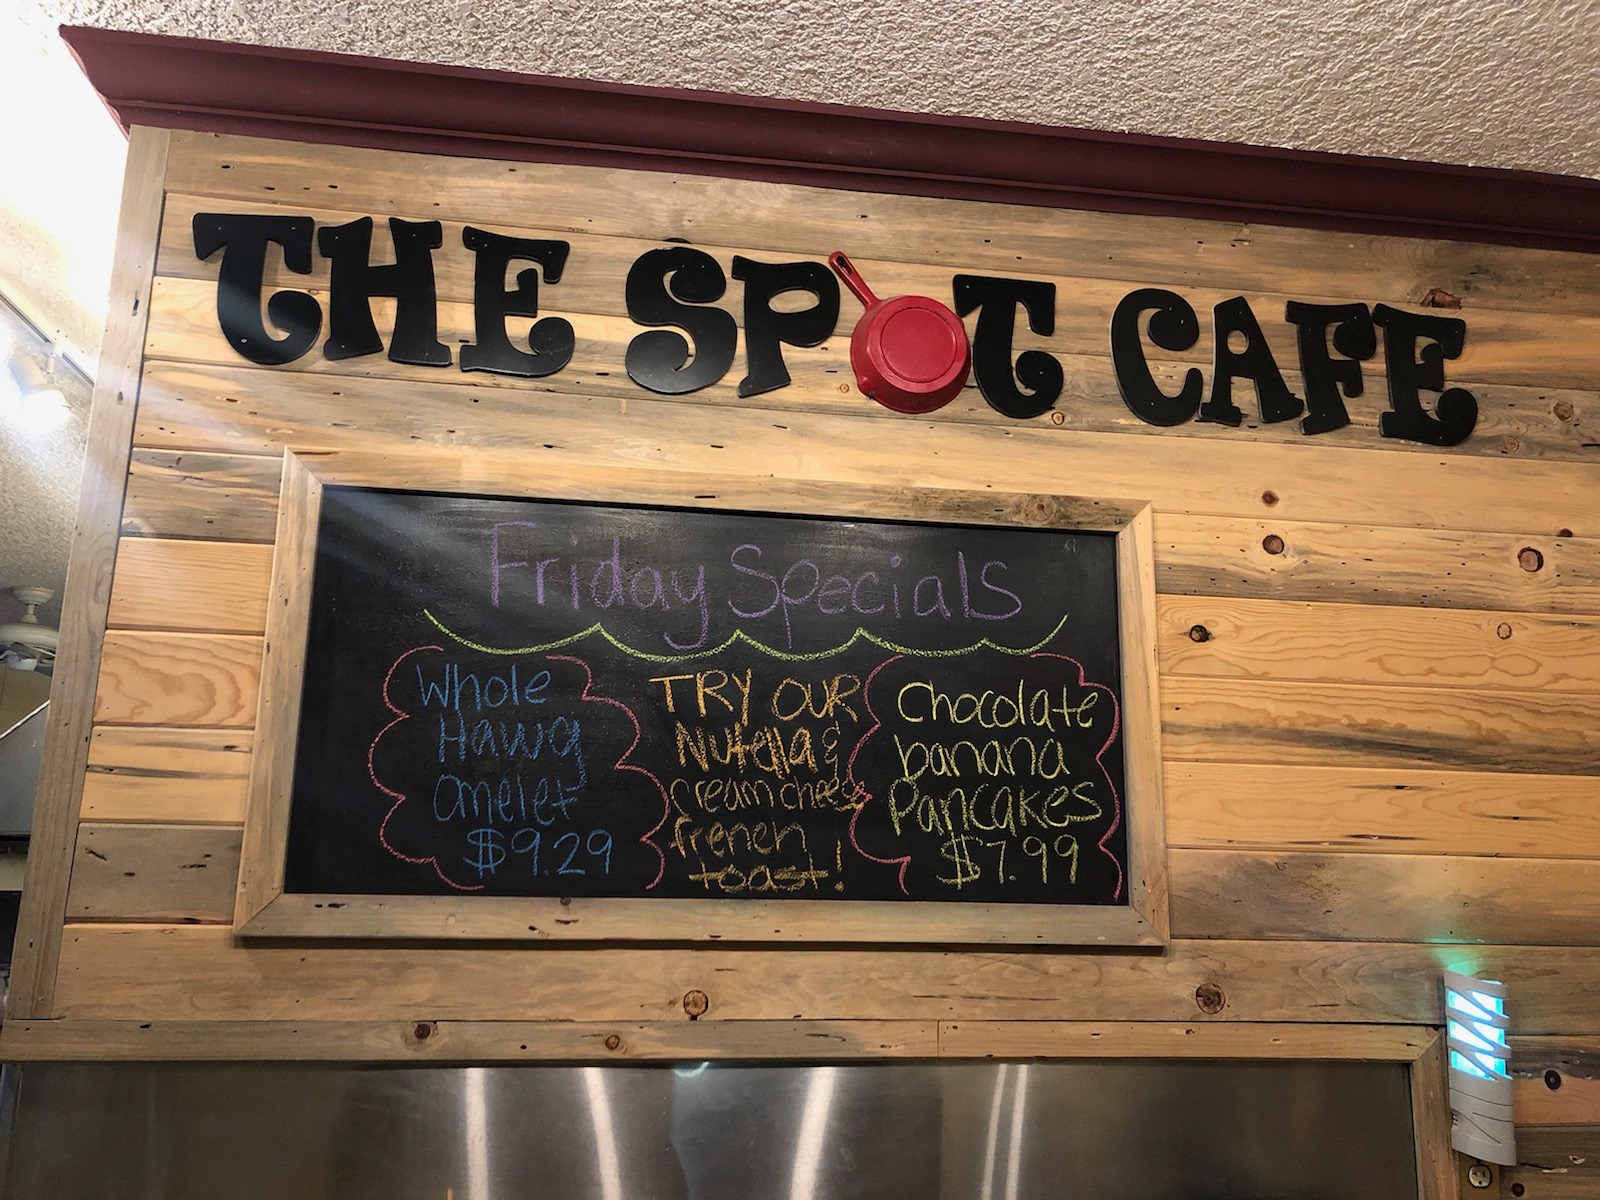 THE SPOT CAFE
Friday Specials
Whole
Hawg
omelet
$9.29
TRY OUR
Nutella &
cream cheese
french
toast!
Chocolate
banana
Pancakes
$7.99